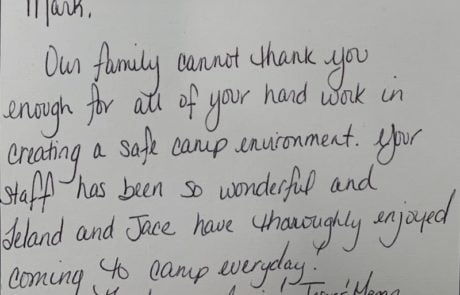 Mark,
Our family cannot thank you
enough for all of your hard work in
creating a safe camp environment. Your
staff has been so wonderful and
Leland and Jace have thoroughly enjoyed
coming to camp everyday!